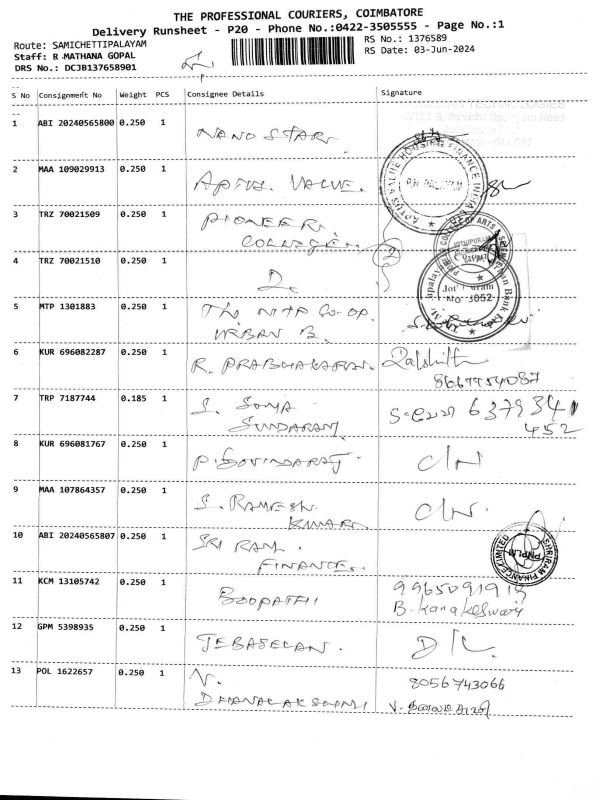 THE PROFESSIONAL COURIERS, COIMBATORE
Delivery Runsheet - P20 - Phone No.:0422-3505555 - Page No.:1
Route: SAMICHETTIPALAYAM
RS No.: 1376589
Staff: R MATHANA GOPAL
RS Date: 03-Jun-2024
DRS No.: DCJB137658901
S No Consignment No Weight PCS Consignee Details Signature
1 ABI 20240565800 0.250 1 NANO STAR
2 MAA 109029913 0.250 1 APTUS. VALUE.
APTUS VALUE HOUSING FINANCE INDIA
P.N. PALAYAM
3 TRZ 70021509 0.250 1 PIONEER
2
4 TRZ 70021510 0.250 1
No 3052
5 MTP 1301883 0.250 1 The MTP Co-OP.
URBAN B.
6 KUR 696082287 0.250 1 R. PRABHAKARAN.
7 TRP 7187744 0.185 1 S. SOMA
SUNDARAM. 452
8 KUR 696081767 0.250 1 P. GOVINDARAJ C/N
9 MAA 107864357 0.250 1 S. RAMESH C/N.
KUMAR
10 ABI 20240565807 0.250 1 SRI RAM.
FINANCE.
SHRIRAM FINANCE LIMITED
11 KCM 13105742 0.250 1 BOOPATHI
B. Kanakeswari
12 GPM 5398935 0.250 1 JEBASELAN.
13 POL 1622657 0.250 1 V. 8056743066
DHANALAKSHMI